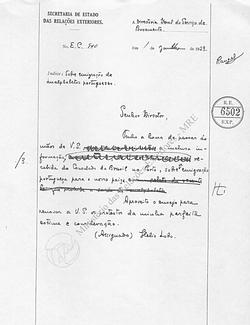 SECRETARIA DE ESTADO
DAS RELAÇÕES EXTERIORES.
A Directoria Geral do Serviço de
Povoamento.
No. E.C. 540
Em 1 de 1929.
Indice: Sobre emigração de
analphabetos portuguezes.
R.E.
6502
EXP.
Senhor Director,
Tenho a honra de passar ás
mãos de V.S. inclusa in-
formação,
cebida do Consulado do Brasil no Porto, sobre emigração
portugueza para o nosso paiz,
Aproveito o ensejo para
renovar a V.S. os protestos da minha perfeita
estima e consideração.
(Assignado) Helio Lobo.
MRE